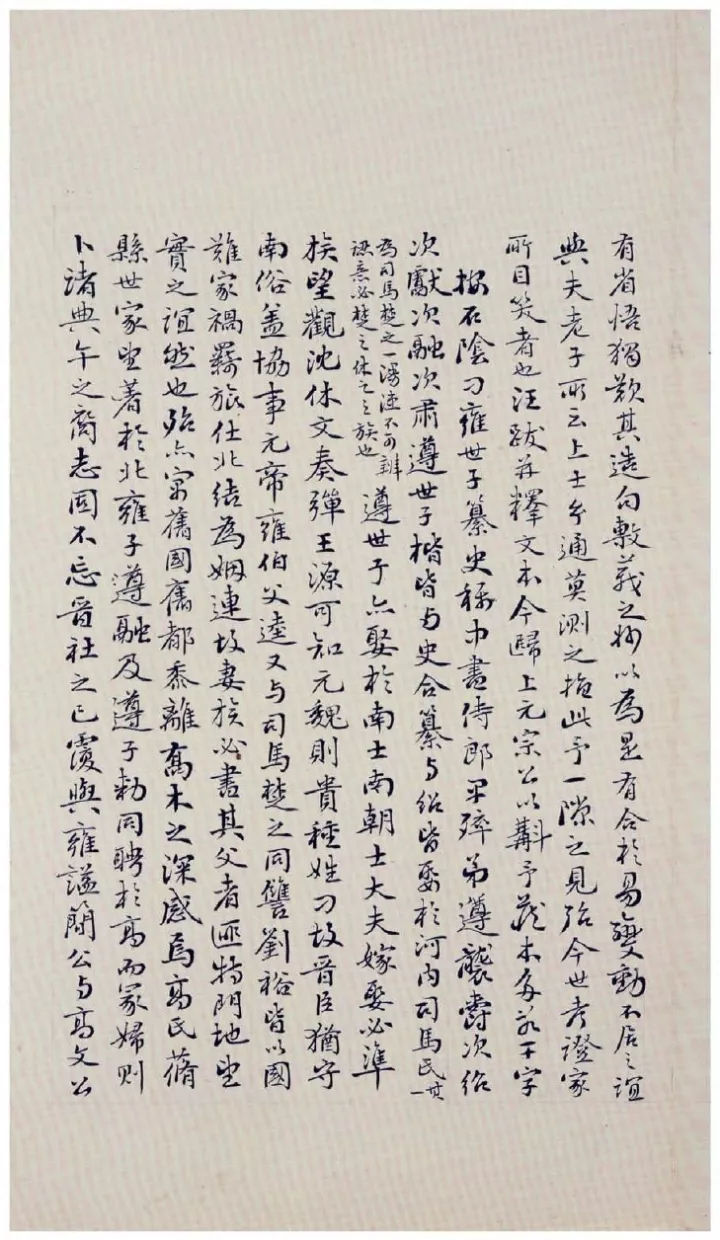 有省悟獨歎其造句敷義之妙以為是有合於易變動不居之誼
與夫老子所云上士兮通莫測之指此予一隙之見殆今世考證家
所目笑者也汪跋并釋文本今歸上元宗公以斠予藏本多若干字
按石陰刁雍世子纂史稱中書侍郎早殫弟遵襲爵次紹
次獻次融次肅遵世子楷皆与史合纂与紹皆娶於河內司馬氏一其
為司馬楚之一漫漶不可辨
諒亦必楚之休之之族也
遵世子亦娶於南士南朝士大夫嫁娶必準
族望觀沈休文奏彈王源可知元魏則貴種姓刁故晉臣猶守
南俗蓋協事元帝雍伯父逵又与司馬楚之同讐劉裕皆以國
難家禍羇旅仕北結為姻連故妻族必書其父者匪特門地望
實之誼然也殆亦寓舊國舊都黍離喬木之深感焉高氏蓨
縣世家望著於北雍子遵融及遵子勑同聘於高而冢婦則
卜諸典午之裔志固不忘晉社之已覆與雍諡簡公与高文公